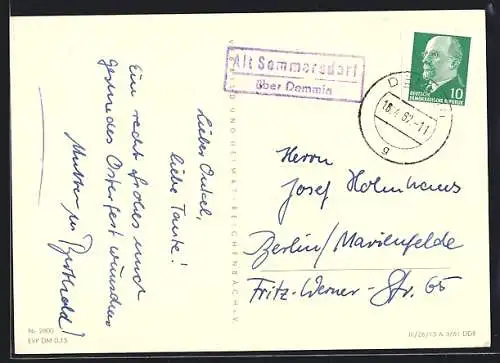 Alt Sommersdorf
über Demmin
DEUTSCHE
DEMOKRATISCHE REPUBLIK
10
18.4.62-11
g
Lieber Onkel,
liebe Tante!
Ein recht frohes und
gesundes Osterfest wünschen
Mutter
Herrn
Josef Holmhaus
Berlin/Marienfelde
Fritz-Werner-Str. 65
Nr. 2800
EVP DM 0,15
DDR